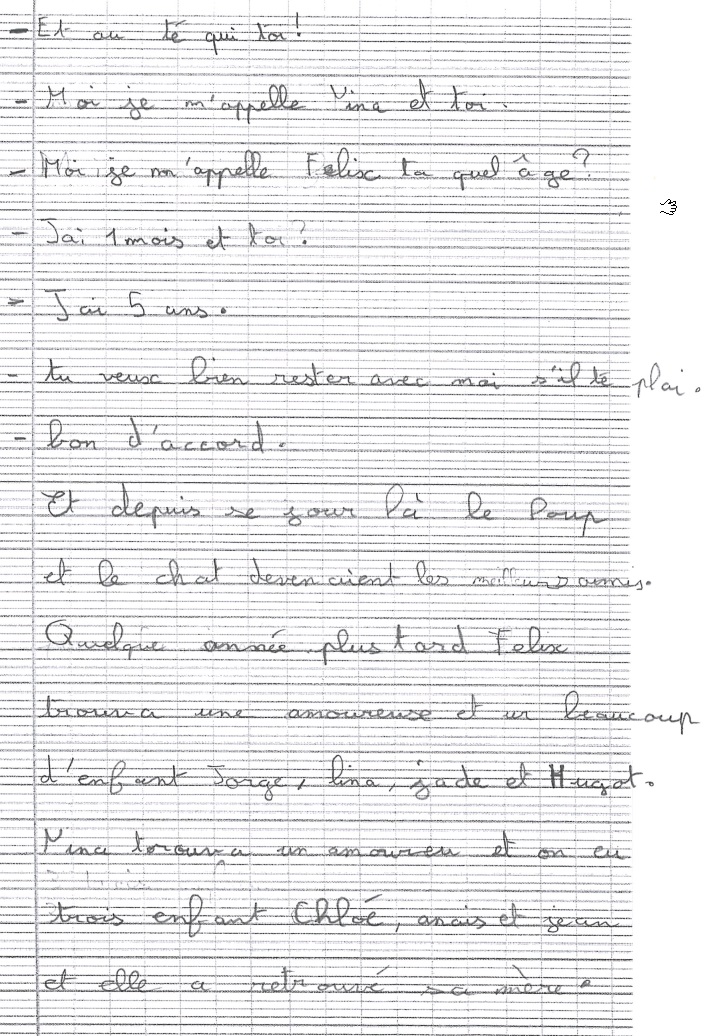 - Et au té qui toi!
- Moi je m'appelle Nina et toi.
- Moi je m'appelle Felix ta quel âge?
- Jai 1 mois et toi?
- Jai 5 ans.
- tu veux bien rester avec moi s'il te plai.
- bon d'accord.
Et depuis se jour là le loup
et le chat devenaient les meilleurs amis.
Quelque année plus tard Felix
trouva une amoureuse et ur beaucoup
d'enfant Jorge, lina, jade et Hugot.
Nina torouva un amoureu et on eu
trois enfant Chloé, anais et jean
et elle a retrouvé sa mère.